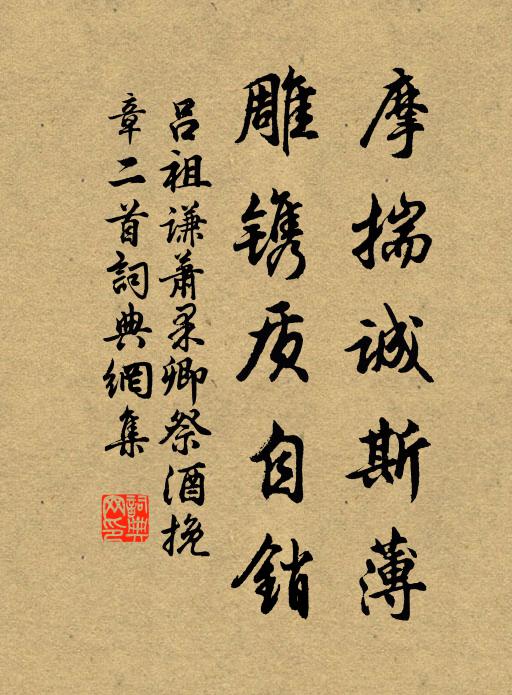 摩揣诚斯薄
雕镌质自销
吕祖谦萧果卿祭酒挽
章二首詞典網集
詞典
网印